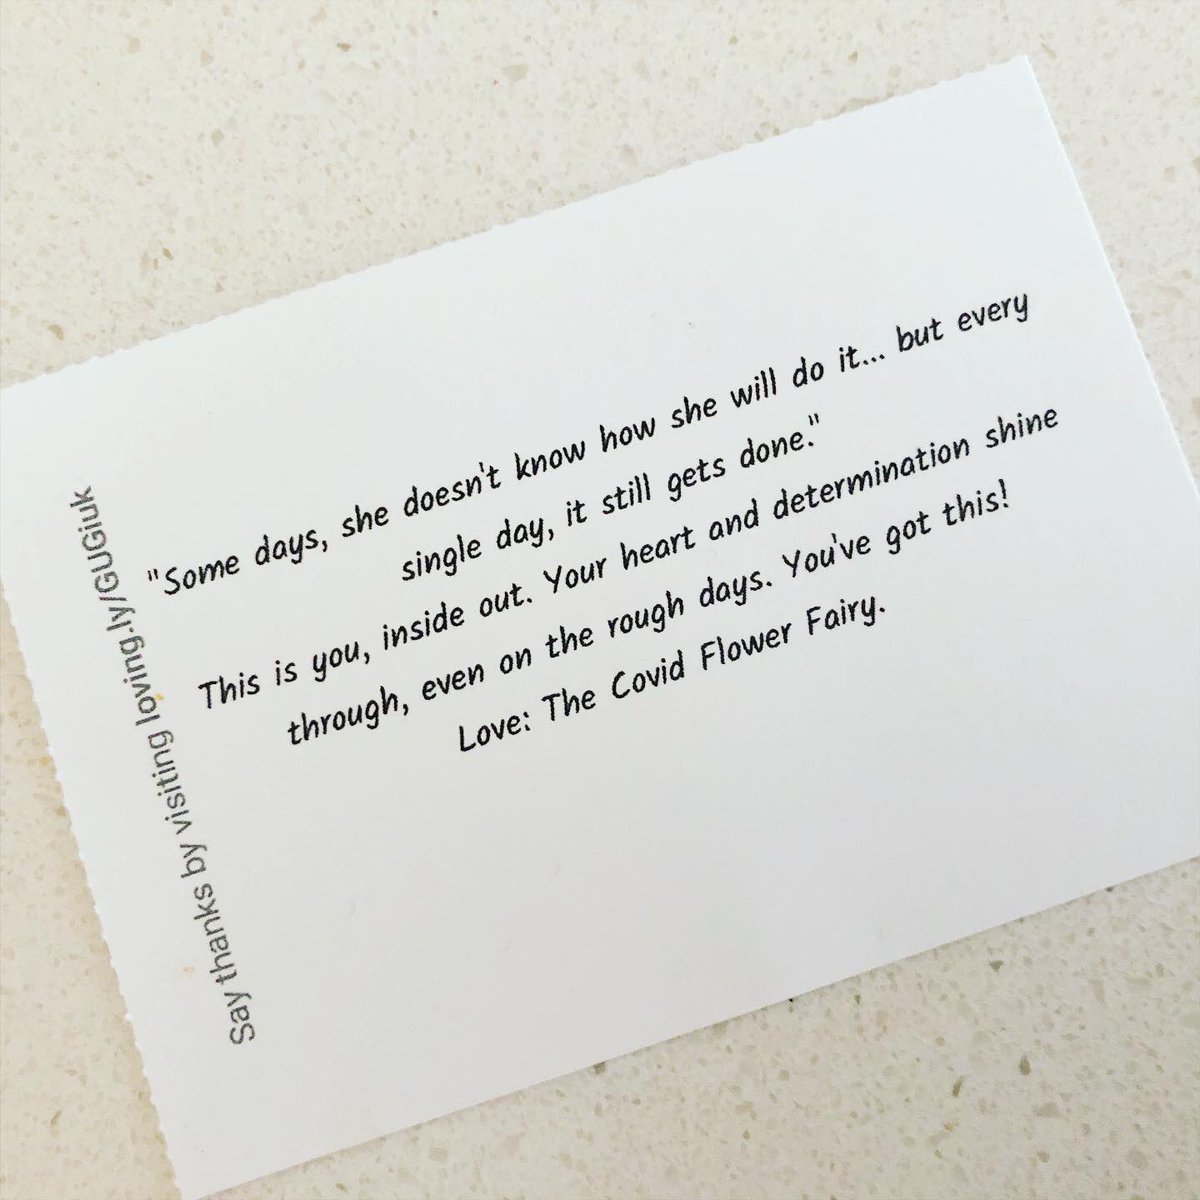 "Some days, she doesn't know how she will do it... but every
single day, it still gets done."
This is you, inside out. Your heart and determination shine
through, even on the rough days. You've got this!
Love: The Covid Flower Fairy.
Say thanks by visiting loving.ly/GUGiuk